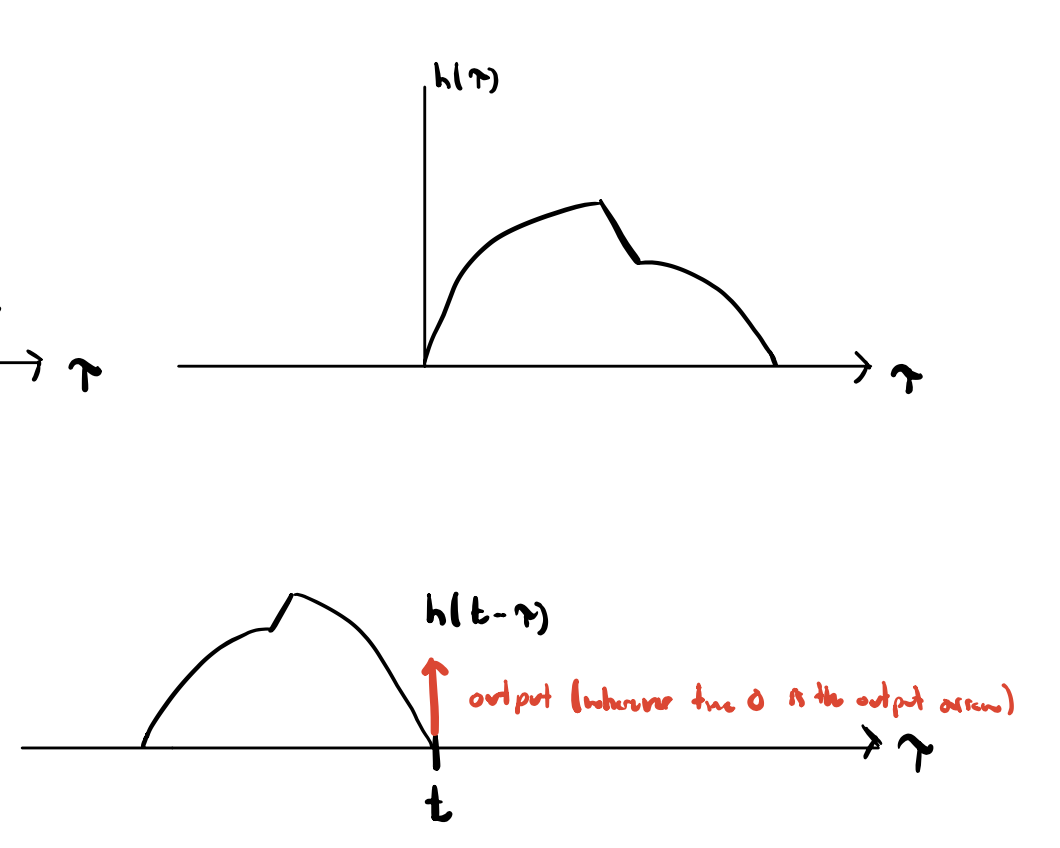 h(τ)
τ
τ
h(t-τ)
output (wherever the 0 is the output arrow)
τ
t